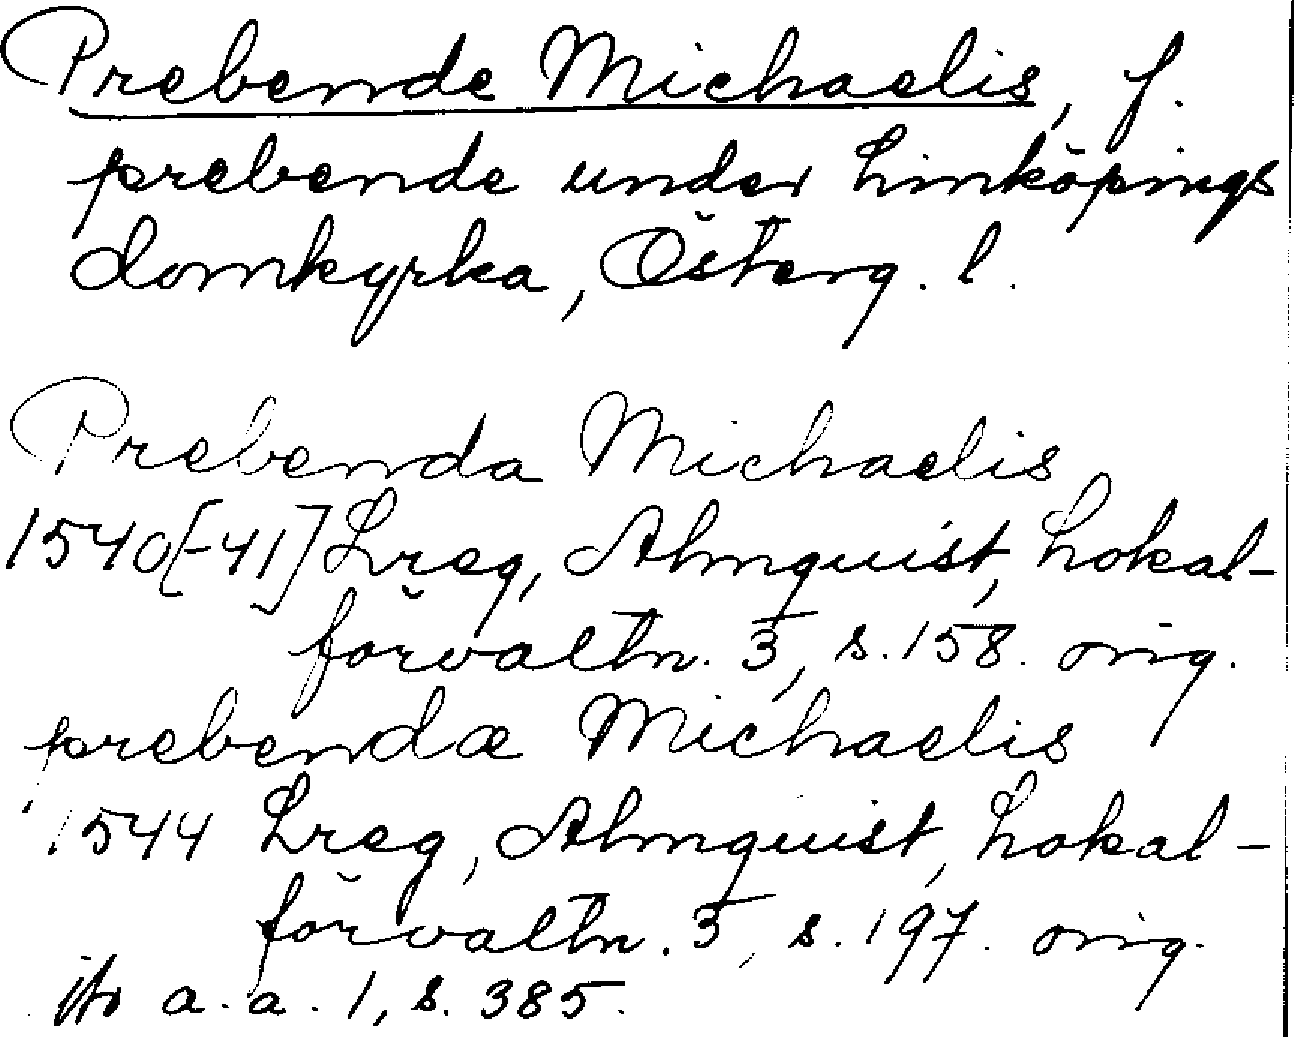 Prebende Michaelis, f.
prebende under Linköpings
domkyrka, Österg. l.
Prebenda Michaelis
1540[-41] Lreg, Almquist, Lokal-
förvaltn. 3, s. 158. orig.
prebendæ Michaelis
1544 Lreg, Almquist, Lokal-
förvaltn. 3, s. 197. orig.
a. a. 1, s. 385.